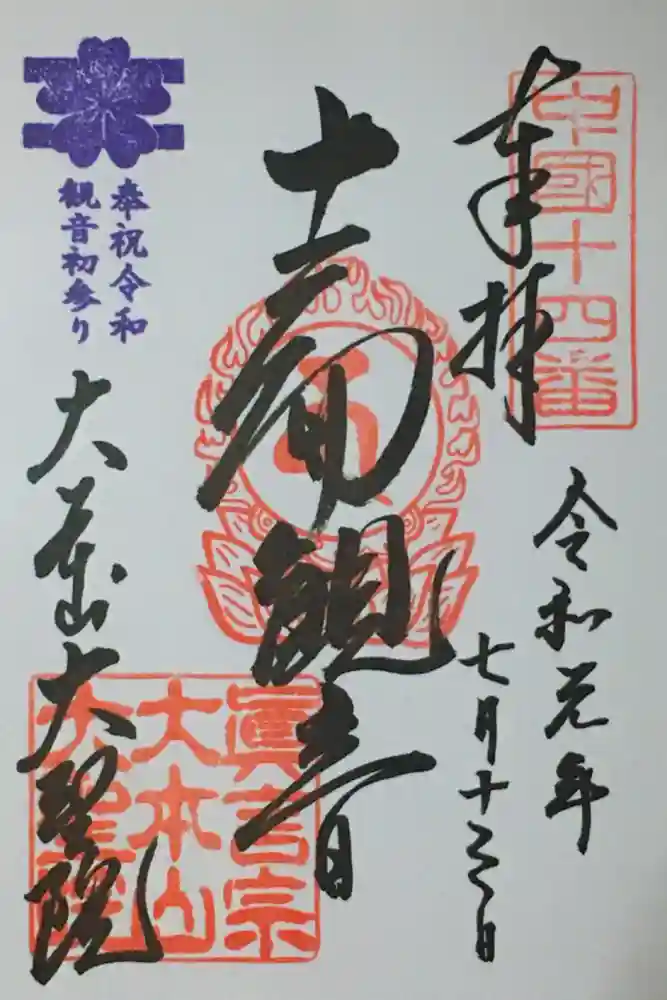 中國十四番
奉拝
令和元年
七月十三日
十一面観音
奉祝令和
観音初参り
大本山大聖院
眞言宗
大本山
大聖院